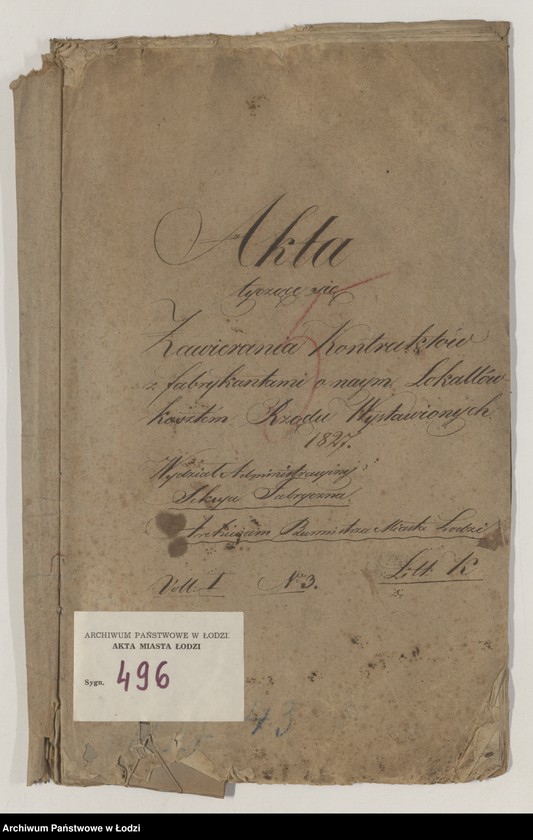 Akta
tyczące się
Zawierania Kontraktów
z fabrykantami o naym Lokallów
kosztem Rządu Wystawionych
1827.
Wydział Administracyiny
Sekcya Fabryczna
Archiwum Burmistrza Miasta Łodzi
Voll: I No 3. Litt: K
ARCHIWUM PAŃSTWOWE W ŁODZI
AKTA MIASTA ŁODZI
Sygn. 496
Archiwum Państwowe w Łodzi